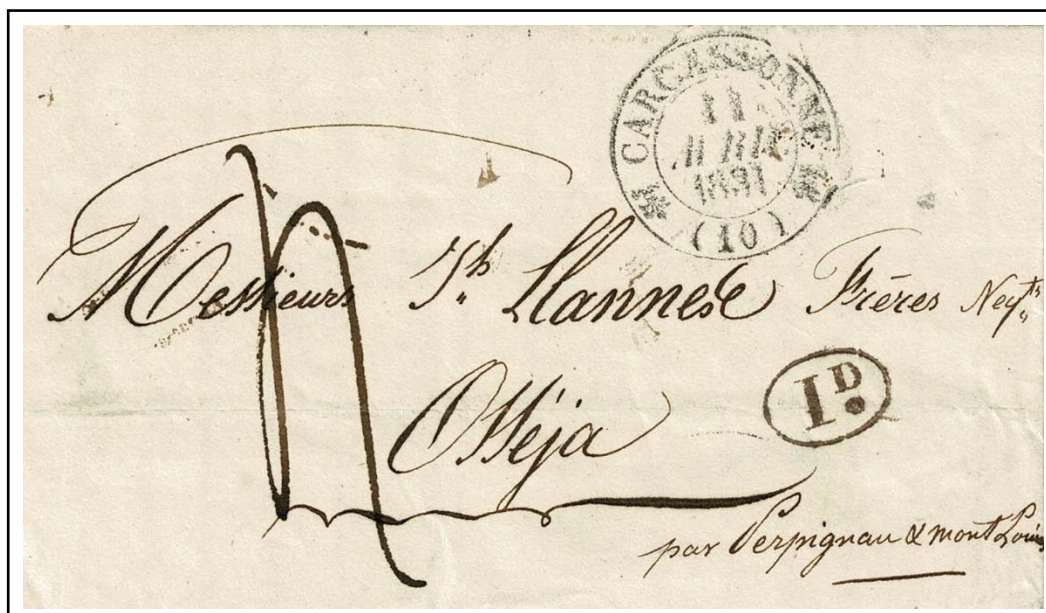 CARCASSONNE
11
AVRIL
1831
(10)
Messieurs Jh Frères Negts
1D.
Osséja
par Perpignan & mont Louis